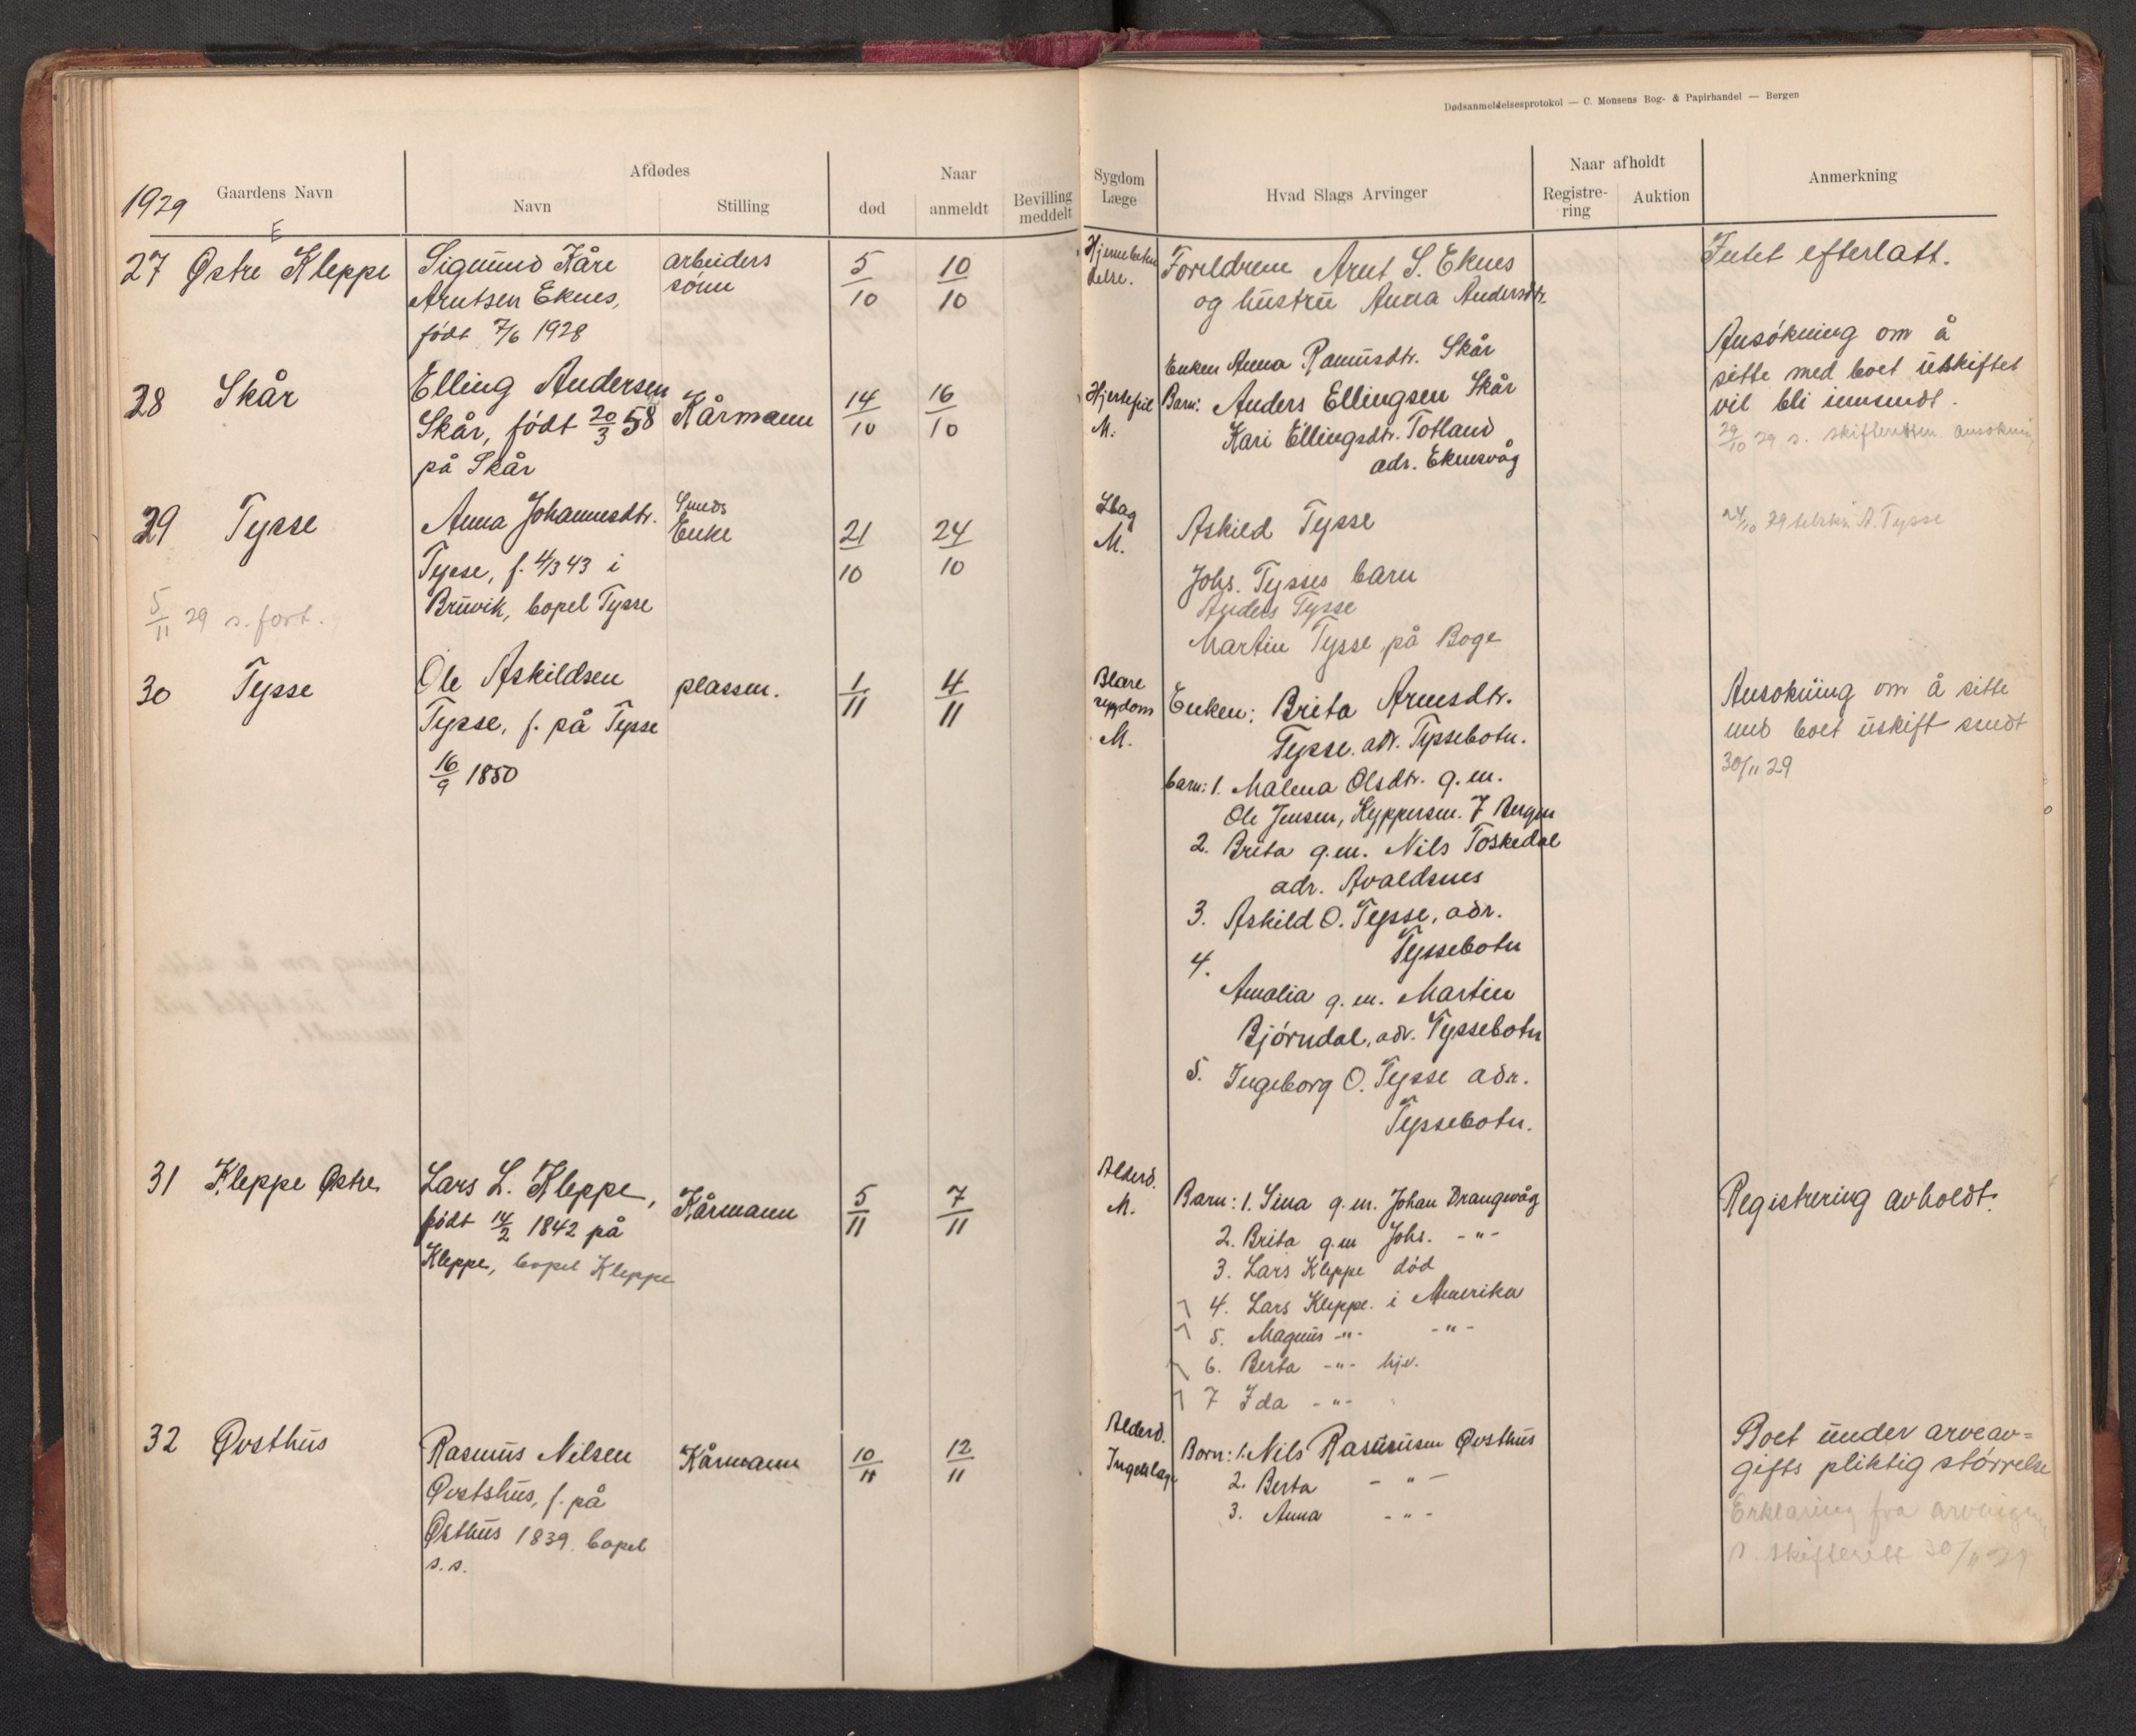 Dødsanmeldelsesprotokol — C. Monsens Bog- & Papirhandel — Bergen
1929
Gaardens Navn
Afdødes
Navn
Stilling
Naar
død
anmeldt
Bevilling meddelt
Sygdom
Læge
Hvad Slags Arvinger
Naar afholdt
Registre-
ring
Auktion
Anmerkning
E
27 Østre Kleppe
Sigmund Kåre
Arntsen Eknes,
født 7/6 1928
arbeiders
sönn
5/10
10/10
Hjernebeten
delse.
Foreldrene Arnt S. Eknes
og hustru Anna Andersdtr.
Intet efterlatt.
28 Skår
Elling Andersen
Skår, født 20/3 58
på Skår
Kårmann
14/10
16/10
Hjertefeil
M.
Enken Anna Rasmusdtr. Skår
Barn: Anders Ellingsen Skår
Kari Ellingsdtr. Totland
adr. Eknesvåg
Ansökning om å
sitte med boet uskiftet
vil bli innsendt.
29/10 29 s. skifteretten ansökning
29 Tysse
Anna Johannesdtr.
Tysse, f. 4/3 43 i
Bruvik, bopel Tysse
Smeds
Enke
21/10
24/10
Slag
M.
Askild Tysse
Johs. Tysses barn
Anders Tysse
Martin Tysse på Boge
24/10 29 A. Tysse
5/11 29 s. fort.
30 Tysse
Ole Askildsen
Tysse, f. på Tysse
16/9 1850
plassm.
1/11
4/11
Blære
sygdom
M.
Enken: Brita Arnesdtr.
Tysse. adr. Tyssebotn.
barn: 1. Malena Olsdtr. g.m.
Ole Jensen, Kyppersm. 7 Bergen
2. Brita g.m. Nils Toskedal
adr. Avaldsnes
3. Askild O. Tysse, adr.
Tyssebotn
4.
Amalia g.m. Martin
Björndal, adr. Tyssebotn
5. Ingeborg O. Tysse adr.
Tyssebotn.
Ansokning om å sitte
med boet uskift sendt
30/11 29
31 Kleppe Østre
Lars L. Kleppe,
født 14/2 1842 på
Kleppe, bopel Kleppe
Kårmann
5/11
7/11
Alderd.
M.
Barn: 1. Sina g.m. Johan Drangsvåg
2. Brita g.m Johs. -"-
3. Lars Kleppe død
4. Lars Kleppe. i Amerika
5. Magnus -"- -"-
6. Berta -"- hjv.
7 Ida -"-
Registrering avholdt.
32 Øvsthus
Rasmus Nilsen
Øvstshus, f. på
Østhus 1839. bopel
s.s.
Kårmann
10/11
12/11
Alderd.
Ingen læge
Born: 1. Nils Rasmusen Øvsthus
2. Berta -"-
3. Anna -"-
Boet under arveav=
gifts pliktig störrelse
Erklæring fra arvingene
s. skifterett 30/11 29